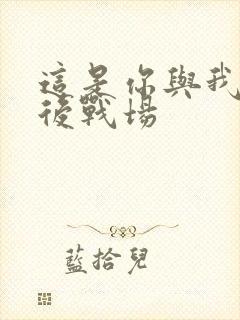 這是你與我
後戰場
藍拾兒